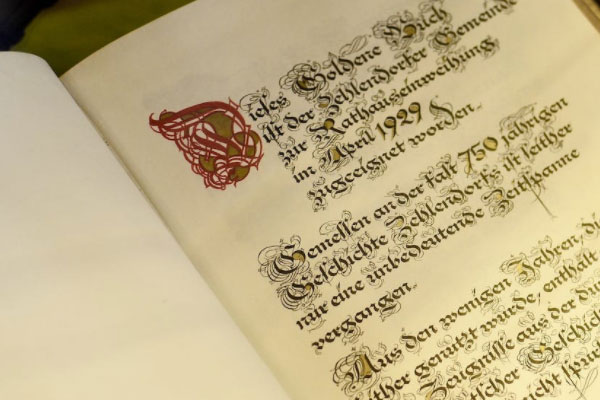 Dieses Goldene Buch
ist der Zehlendorfer Gemeinde
zur Rathauseinweihung
im April 1929
zugeeignet worden.
Gemessen an der fast 750 jährigen
Geschichte Zehlendorfs ist seither
nur eine unbedeutende Zeitspanne
vergangen.
Aus den wenigen Jahren, di
ither genutzt wurde, enthält
Zeugnisse aus der dü
tscher Geschich
icht spur